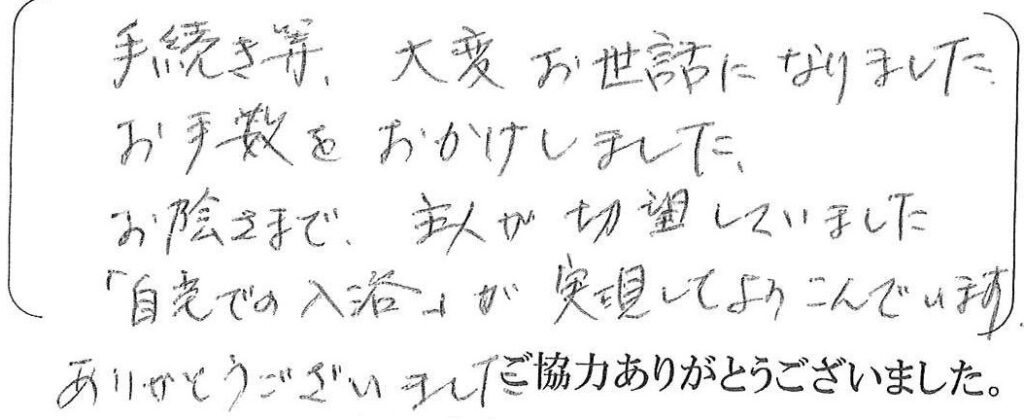 手続き等、大変お世話になりました。
お手数をおかけしました、
お陰さまで、主人が切望していました
「自宅での入浴」が実現してよろこんでいます。
ありがとうございました ご協力ありがとうございました。